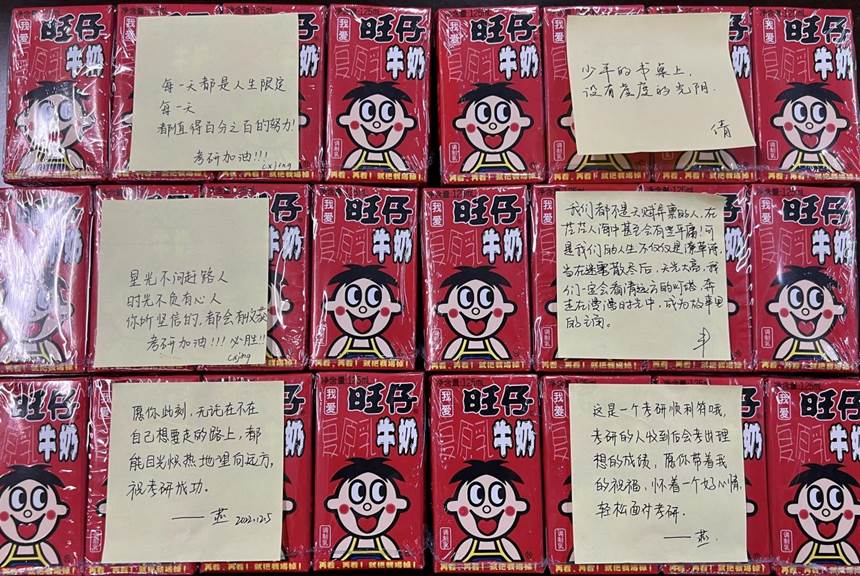 我爱
旺仔
牛奶
净含量:125mL
调制乳
再看！再看！就把你喝掉！
每一天都是人生限定
每一天
都值得百分之百的努力！
考研加油!!!
cxjing
少年的书桌上，
没有虚度的光阴.
倩
星光不问赶路人
时光不负有心人
你所坚信的，都会有收获
考研加油!!! 必胜!!
cxjing
我们都不是天赋异禀的人，在
茫茫人海中甚至会有些平庸！可
是我们的人生不仅仅是潦草诗，
当在迷雾散尽后，天光大亮，我
们一定会看清远方的灯塔，奔
走在漫漫时光中，成为故事里
的主角。
愿你此刻，无论在不在
自己想要走的路上，都
能目光炽热地望向远方，
祝考研成功.
——燕 2022.12.5
这是一个考研顺利符哦，
考研的人收到后会考出理
想的成绩，愿你带着我
的祝福，怀着一个好心情，
轻松面对考研.
——燕.